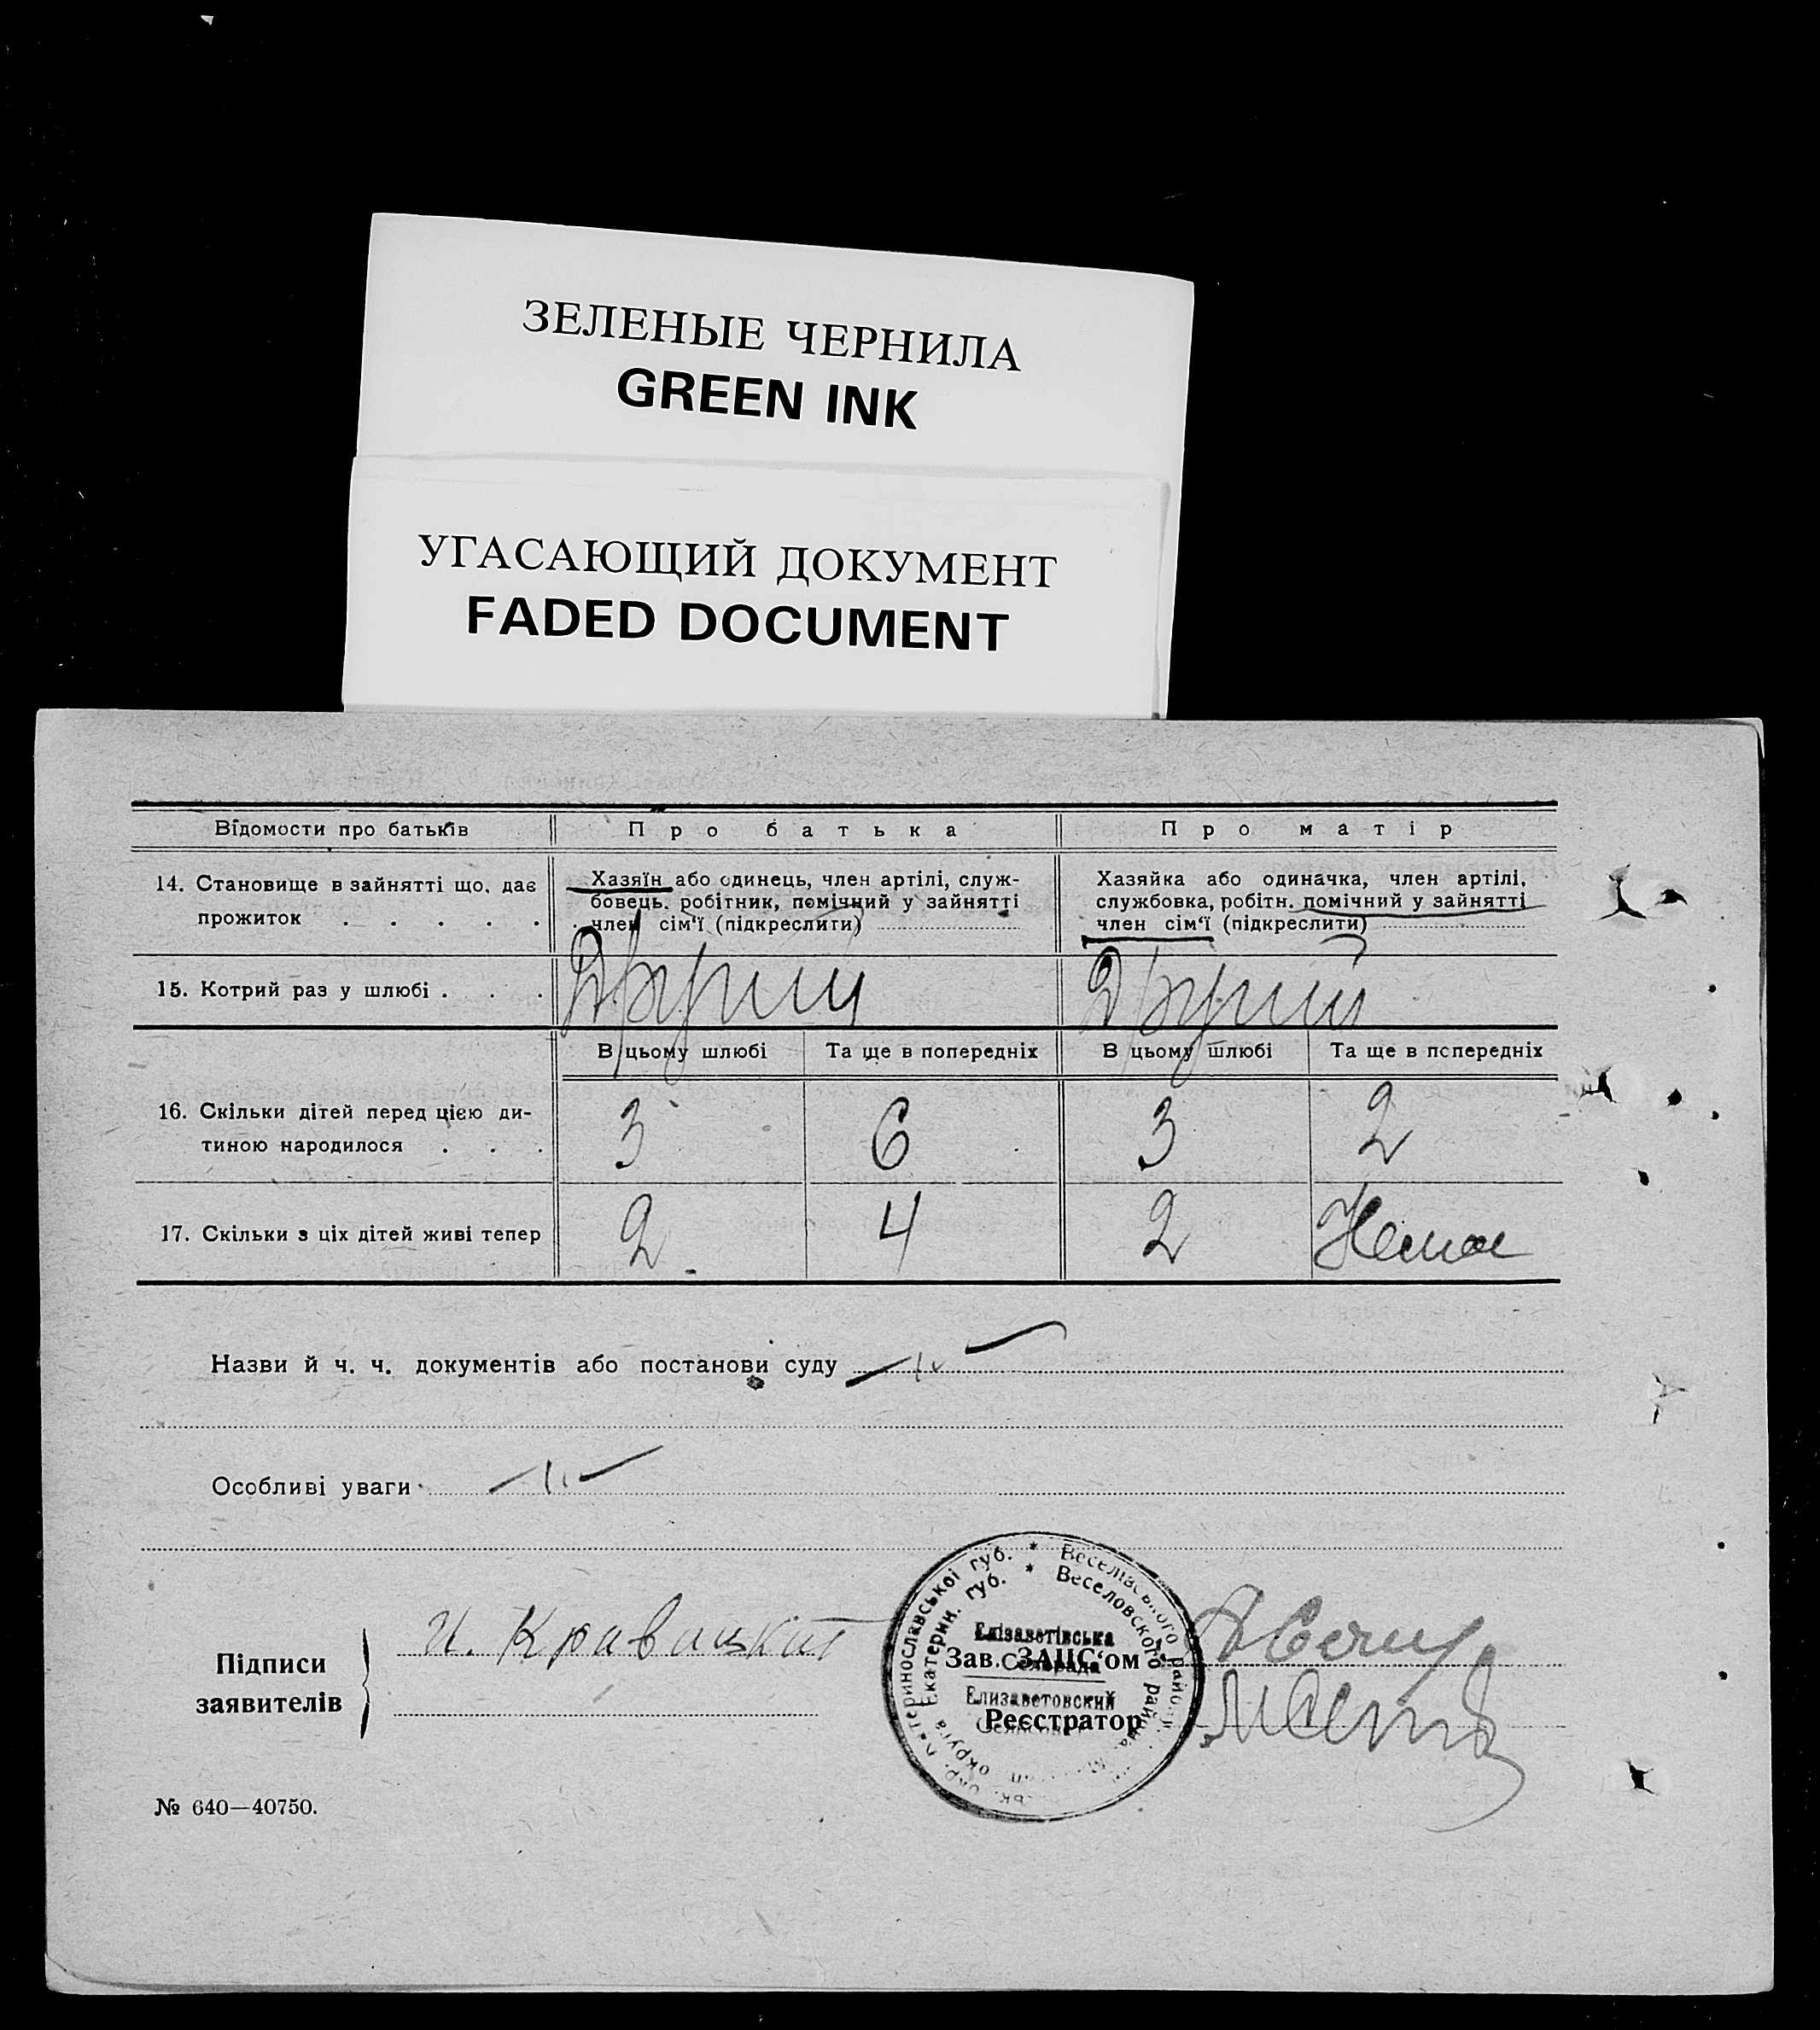 ЗЕЛЕНЫЕ ЧЕРНИЛА
GREEN INK
УГАСАЮЩИЙ ДОКУМЕНТ
FADED DOCUMENT
Відомости про батьків
Про батька
Про матір
14. Становище в зайнятті що, дає
прожиток . . . . .
Хазяїн або одинець, член артілі, служ-
бовець. робітник, помічний у зайнятті
член сім‘ї (підкреслити)
Хазяйка або одиначка, член артілі,
службовка, робітн. помічний у зайнятті
член сім‘ї (підкреслити)
15. Котрий раз у шлюбі . . .
Другий
Другий
В цьому шлюбі
Та ще в попередніх
В цьому шлюбі
Та ще в попередніх
16. Скільки дітей перед цією ди-
тиною народилося . . .
3
6
3
2
17. Скільки з ціх дітей живі тепер
2
4
2
Немає
Назви й ч. ч. документів або постанови суду
Особливі уваги
Підписи
заявителів
И.
Зав. ЗАЦС‘ом
Реєстратор
Катеринославської губ. * Веселівського району
Екатерин. губ. * Веселовского района
округа
Елізаветівська
Сельрада
Елизаветовский
№ 640—40750.